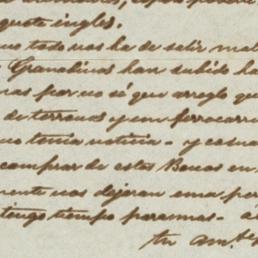 quete ingles.
no todo nos ha de salir mal
Granalinas han subido ha
mas por no sé que arreglo que
de terrenos y un ferrocarri
no tenia noticia - y es
comprar de estos Bonos en
mente nos dejaran una per
tengo tiempo para mas - á
tu am.te